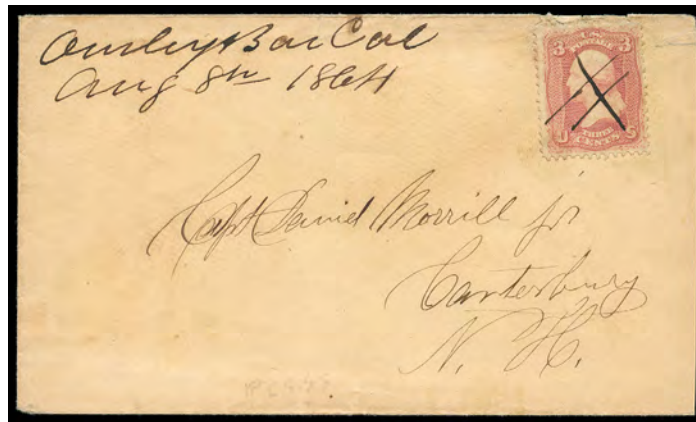 Ousley Bar Cal
Aug 8th 1864
U.S.
POSTAGE
3 3
U S
THREE
CENTS
Capt David Morrill jr
Canterbury
N. H.